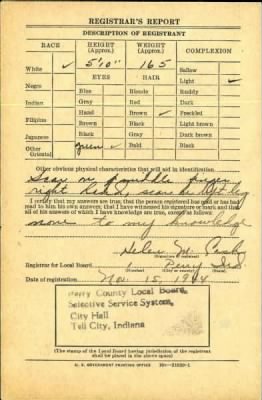 REGISTRAR'S REPORT
DESCRIPTION OF REGISTRANT
RACE HEIGHT (Approx.) WEIGHT (Approx.) COMPLEXION
White ✓ 5'10" 165 Sallow
EYES HAIR Light ✓
Negro Blue Blonde Ruddy
Indian Gray Red Dark
Filipino Hazel Brown ✓ Freckled
Brown Black Light brown
Japanese Black Gray Dark brown
Other Oriental green ✓ Bald Black
Other obvious physical characteristics that will aid in identification
Scar on middle finger
right hand, scar on left leg
I certify that my answers are true; that the person registered has read or has had
read to him his own answers; that I have witnessed his signature or mark and that
all of his answers of which I have knowledge are true, except as follows:
none to my knowledge
Helen M.
Registrar for Local Board Perry Ind
(Number) (City or county) (State)
Date of registration Nov 15, 1944
Perry County Local Board,
Selective Service System,
City Hall
Tell City, Indiana
(The stamp of the Local Board having jurisdiction of the registrant
shall be placed in the above space)
U. S. GOVERNMENT PRINTING OFFICE